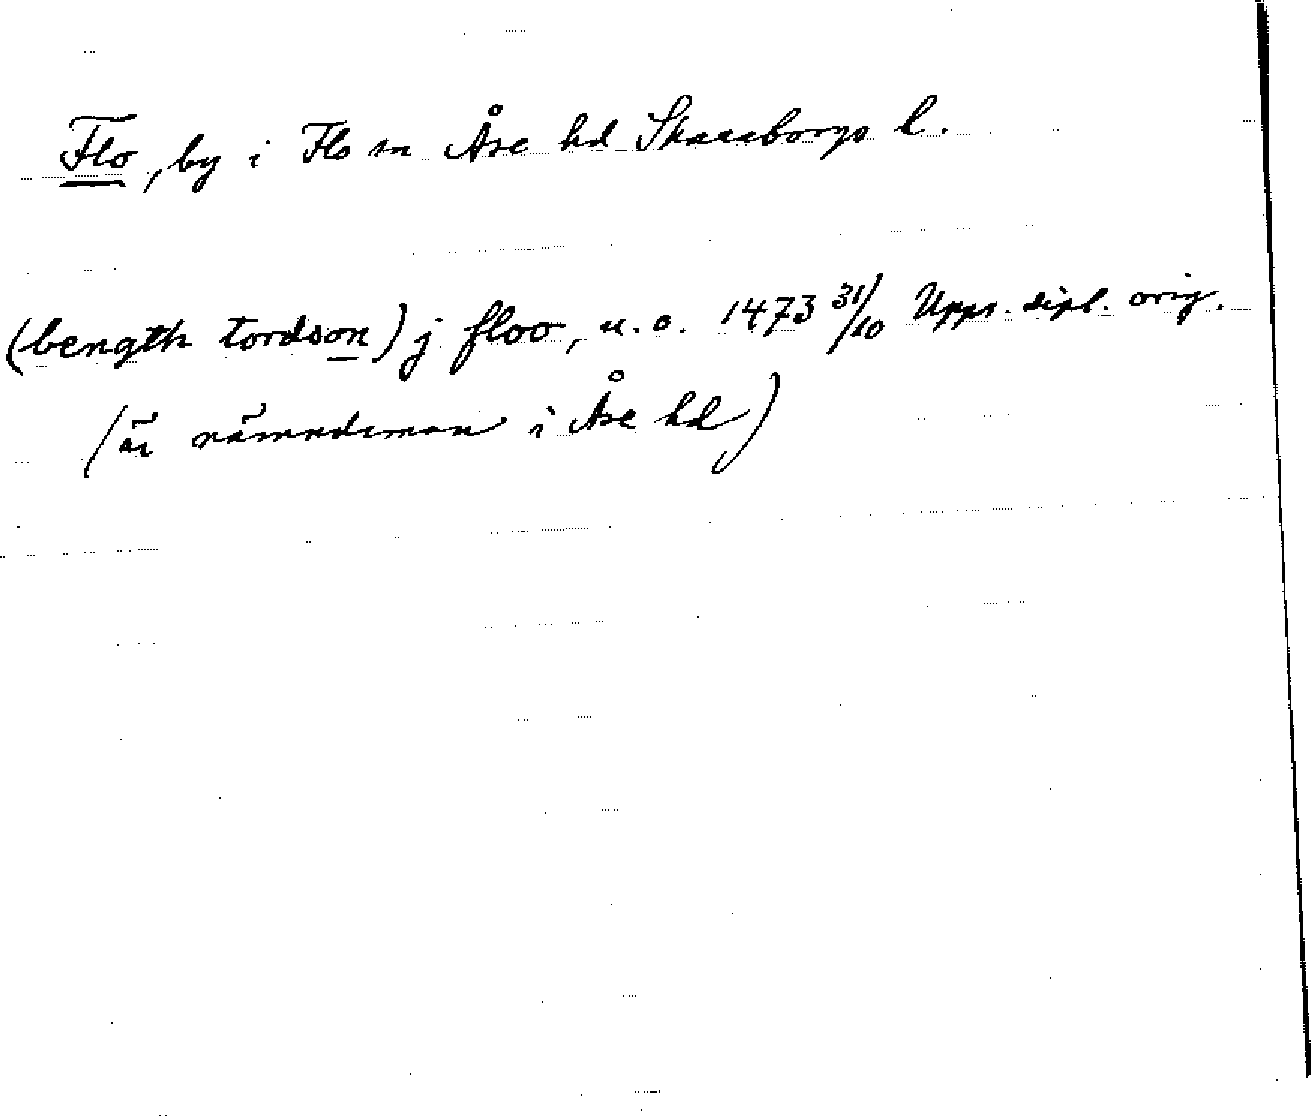 Flo, by i Flo sn Åse hd Skaraborgs l.
(bength tordson) j floo, u.o. 1473 31/10 Upps. dipl. orig.
(är nämndeman i Åse hd)